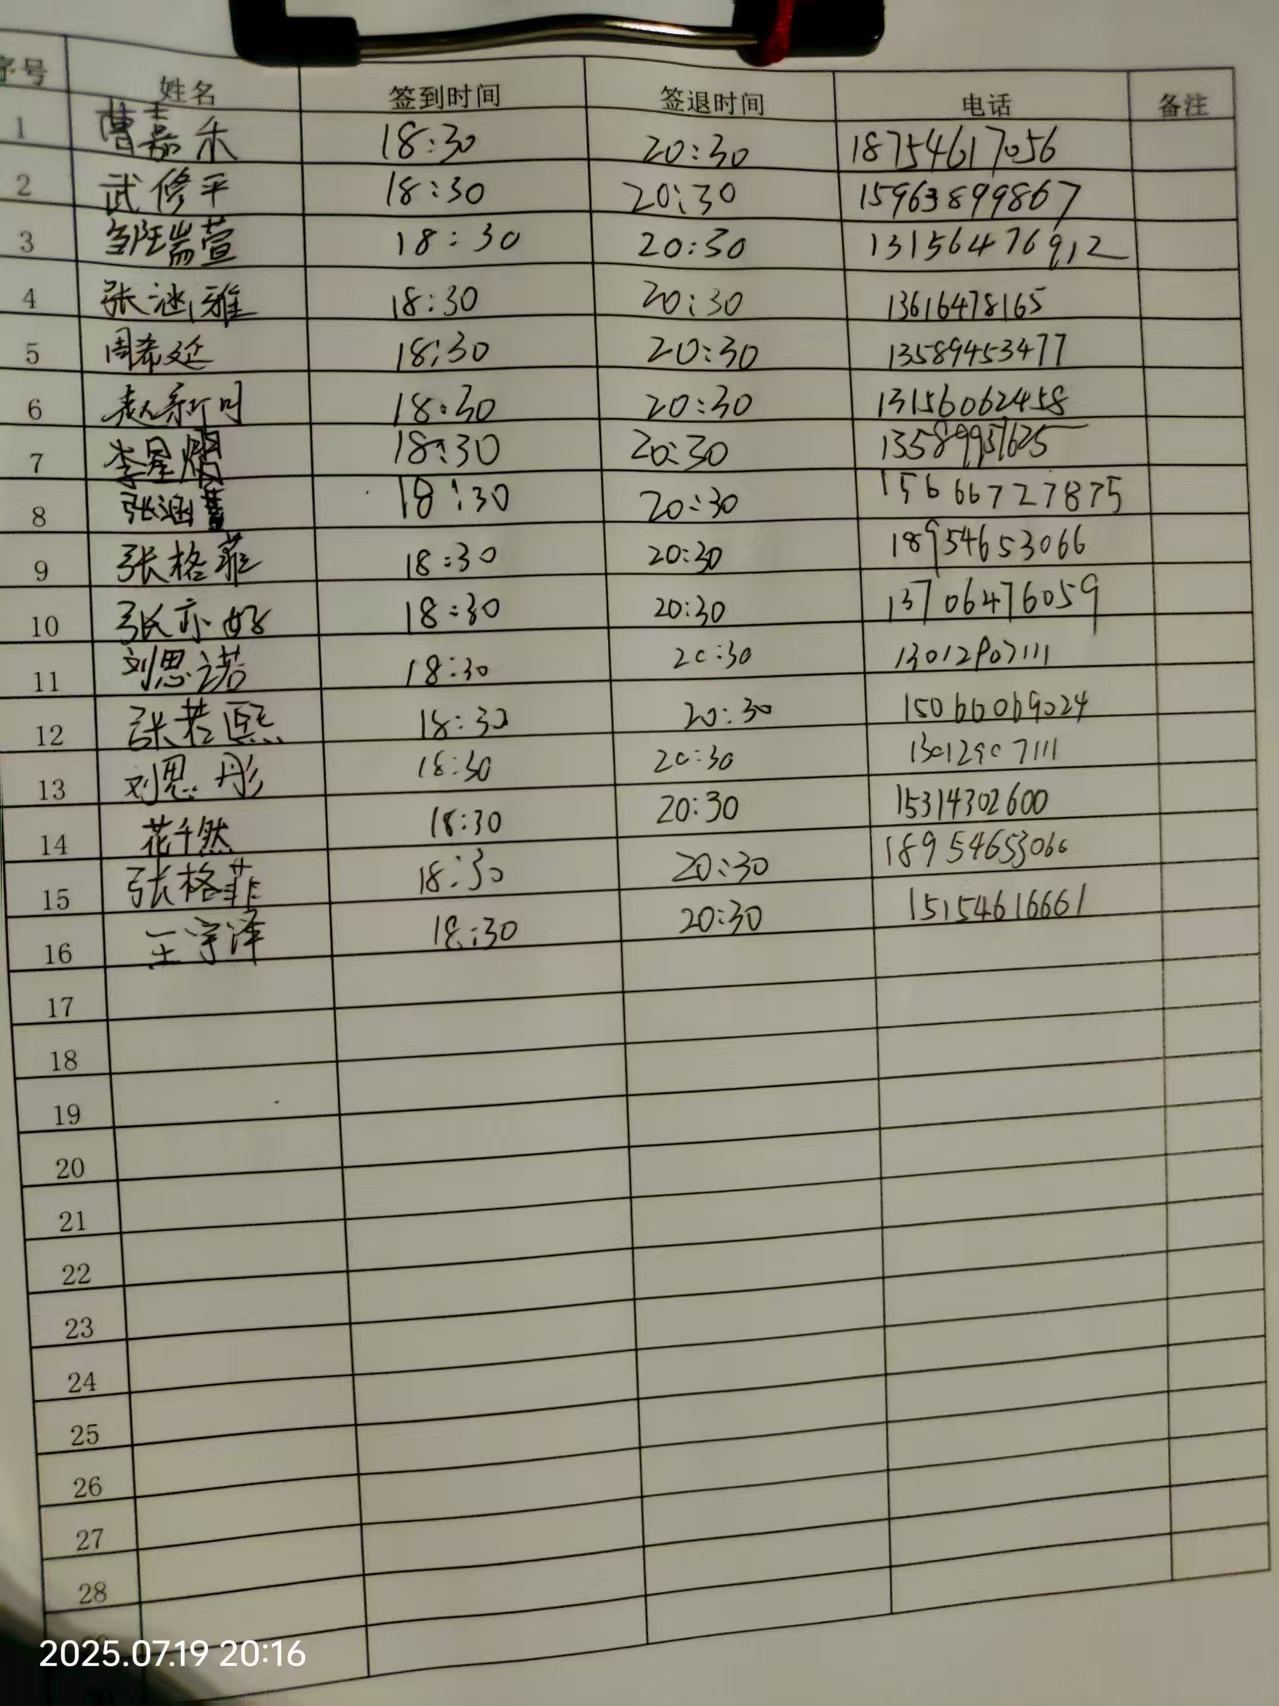 序号 姓名 签到时间 签退时间 电话 备注
1 曹嘉禾 18:30 20:30 18754617056
2 武修平 18:30 20:30 15963899867
3 邹瑞萱 18:30 20:30 13156476912
4 张涵雅 18:30 20:30 13616478165
5 周希延 18:30 20:30 13589453477
6 赵新月 18:30 20:30 13156062458
7 李星熠 18:30 20:30
8 张涵 18:30 20:30 15666727875
9 张格菲 18:30 20:30 18954653066
10 张亦好 18:30 20:30 13706476059
11 刘思诺 18:30 20:30 13012907111
12 张若熙 18:30 20:30 15066069024
13 刘思彤 18:30 20:30 13012907111
14 花千然 18:30 20:30 15314302600
15 张格菲 18:30 20:30 18954653066
16 王宇泽 18:30 20:30 15154616661
17
18
19
20
21
22
23
24
25
26
27
28
2025.07.19 20:16